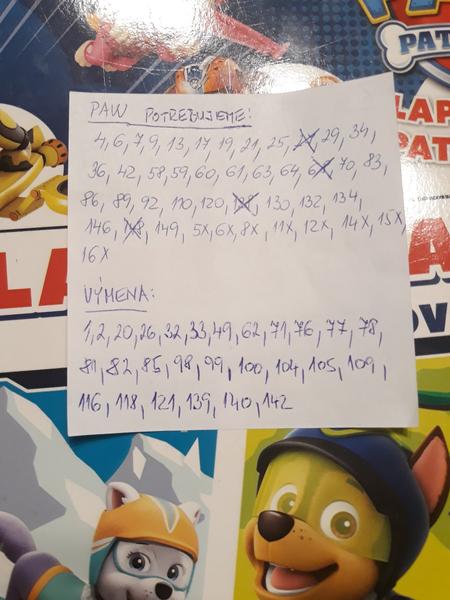 PAW
PAT
LAP
PAT
PAW POTREBUJEME:
4, 6, 7, 9, 13, 17, 19, 21, 25, 29, 34,
36, 42, 58, 59, 60, 61, 63, 64, 70, 83,
86, 89, 92, 110, 120, 130, 132, 134,
146, 149, 5X, 6X, 8X, 11X, 12X, 14X, 15X,
16X
VÝMENA:
1, 2, 20, 26, 32, 33, 49, 62, 71, 76, 77, 78,
81, 82, 85, 98, 99, 100, 104, 105, 109,
116, 118, 121, 139, 140, 142
LA
A
OV